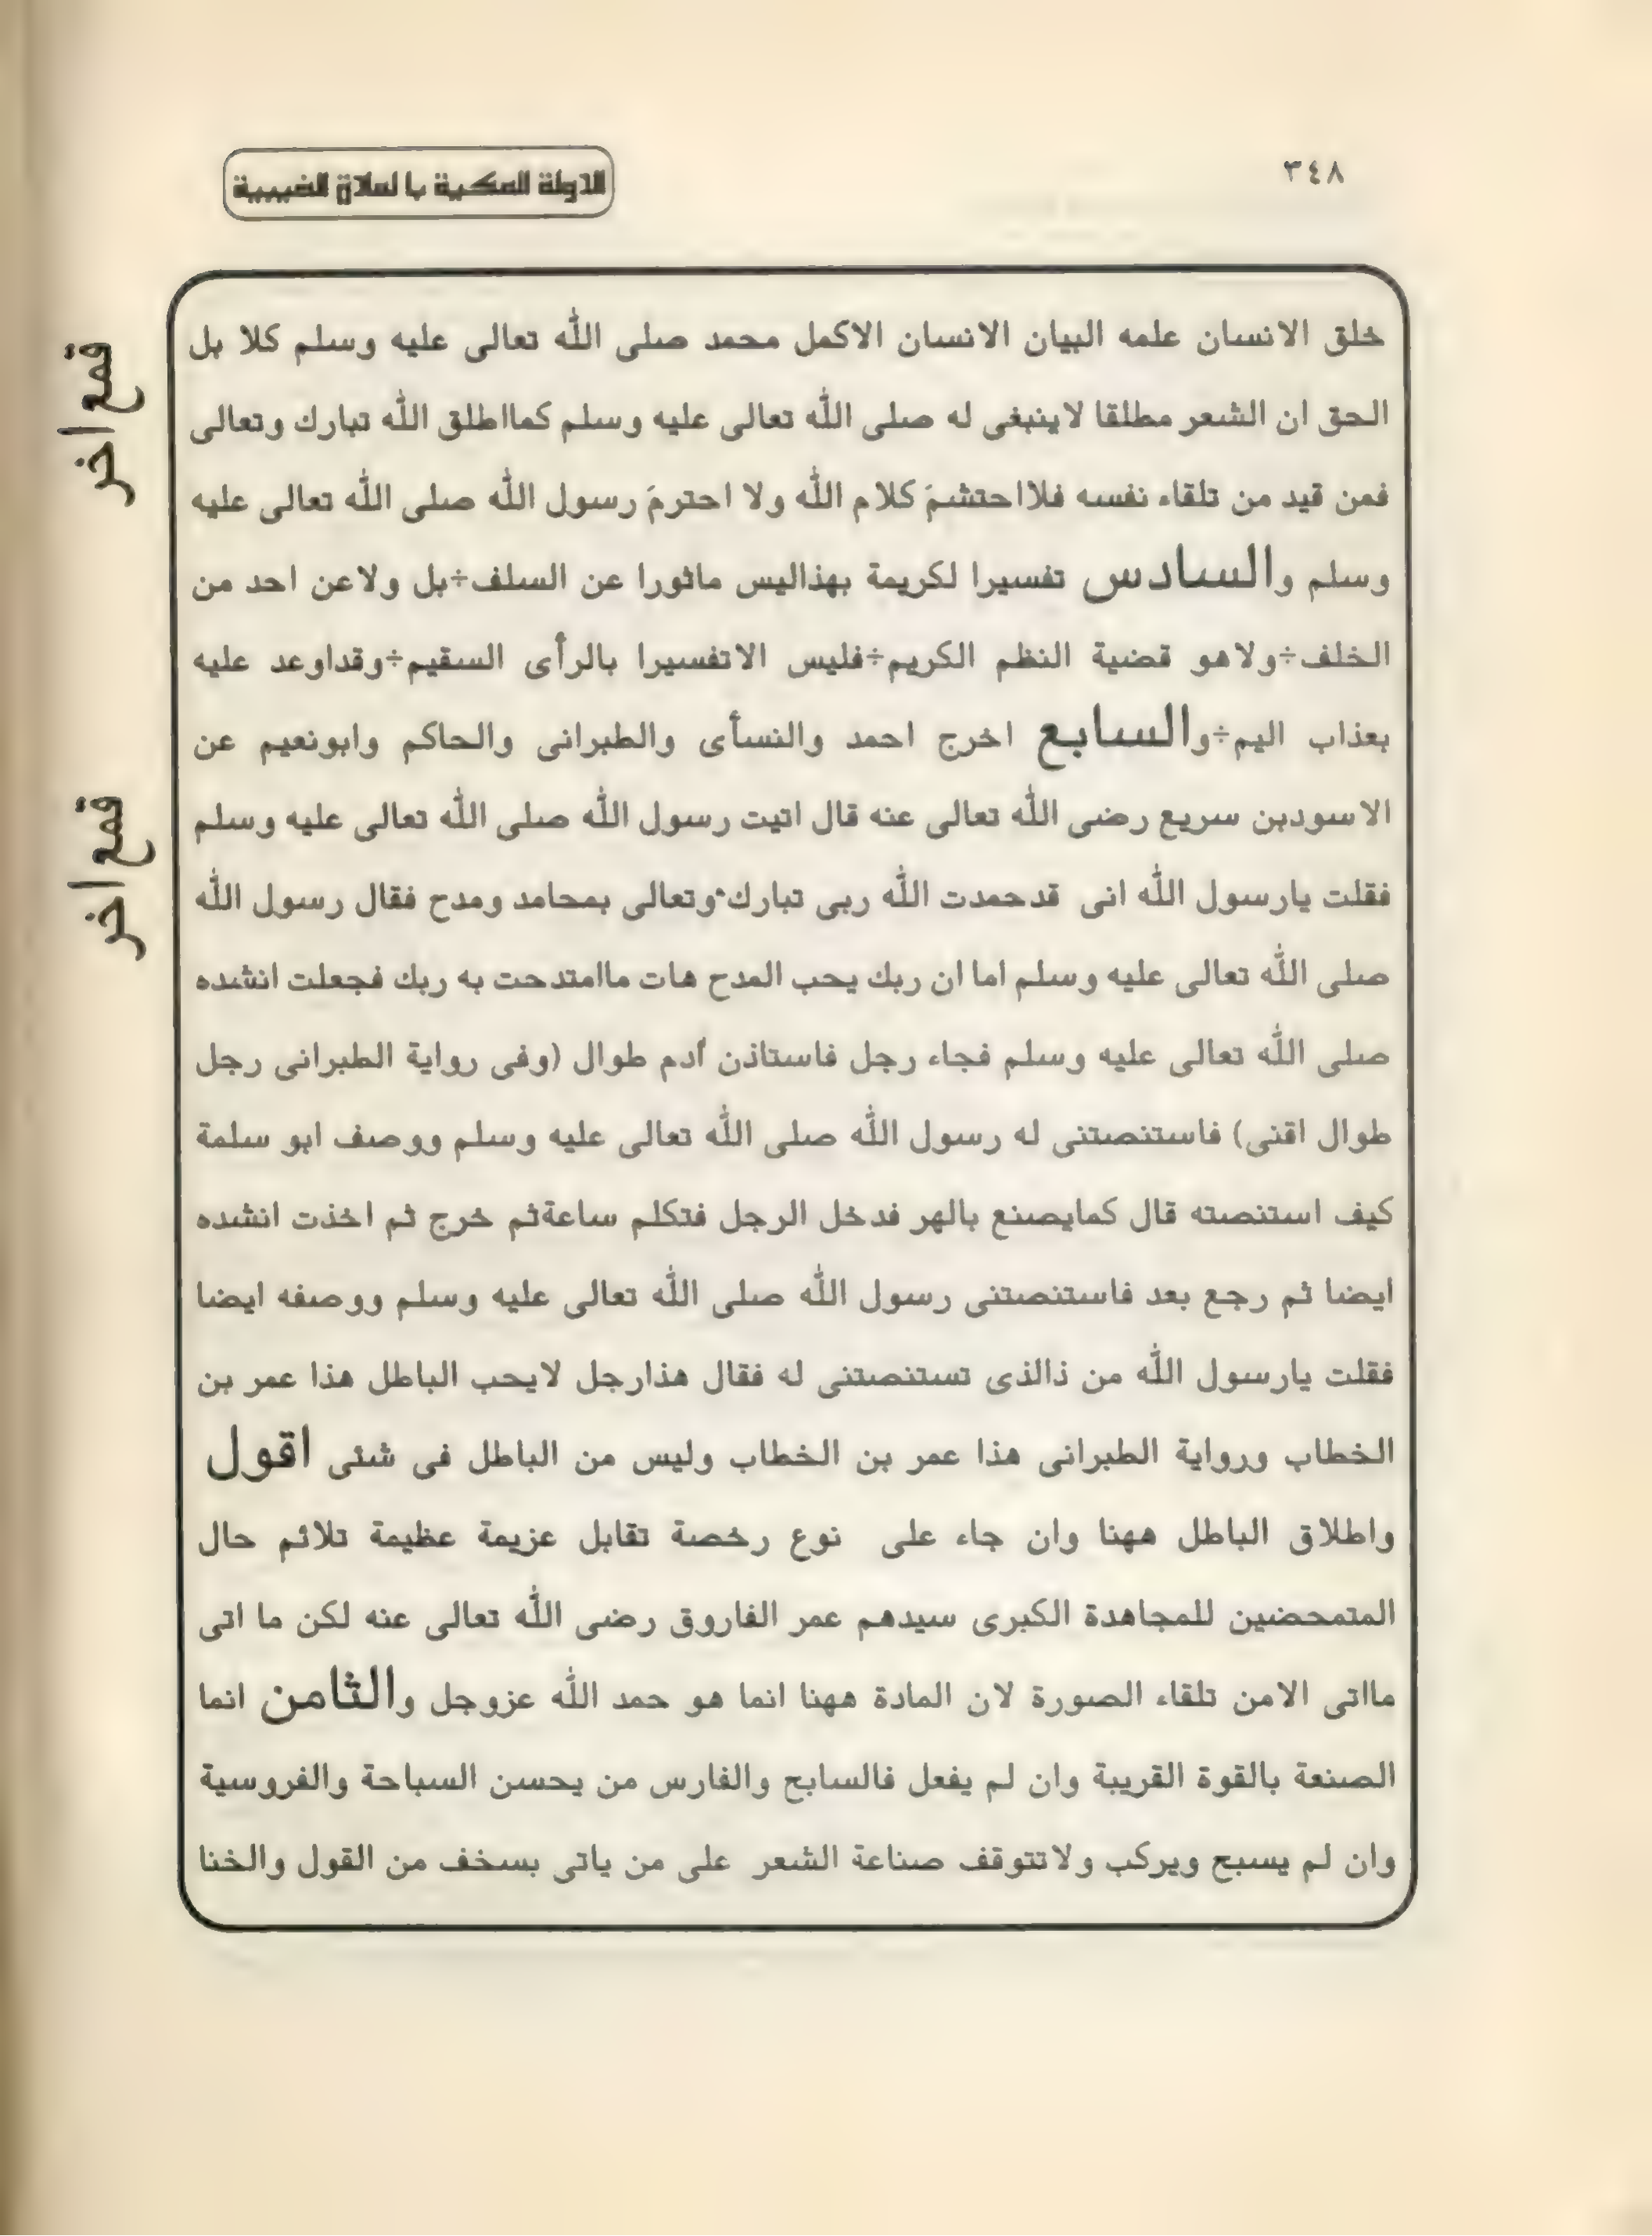 ٣٤٨
خلق الانسان علمه البيان الانسان الاكمل محمد صلى الله تعالى عليه وسلم كلا بل
الحق ان الشعر مطلقا لاينبغى له صلى الله تعالى عليه وسلم كمااطلق الله تبارك وتعالى
فمن قيد من تلقاء نفسه فلااحتشمَ كلام الله ولا احترمَ رسول الله صلى الله تعالى عليه
وسلم والسادس تفسيرا لكريمة بهذاليس ماثورا عن السلف÷بل ولاعن احد من
الخلف÷ولاهو قضية النظم الكريم÷فليس الاتفسيرا بالرأى السقيم÷وقداوعد عليه
بعذاب اليم÷والسابع اخرج احمد والنسأى والطبرانى والحاكم وابونعيم عن
الاسودبن سريع رضى الله تعالى عنه قال اتيت رسول الله صلى الله تعالى عليه وسلم
فقلت يارسول الله انى قدحمدت الله ربى تبارك وتعالى بمحامد ومدح فقال رسول الله
صلى الله تعالى عليه وسلم اما ان ربك يحب المدح هات ماامتدحت به ربك فجعلت انشده
صلى الله تعالى عليه وسلم فجاء رجل فاستاذن اٰدم طوال (وفى رواية الطبرانى رجل
طوال اقنى) فاستنصتنى له رسول الله صلى الله تعالى عليه وسلم ووصف ابو سلمة
كيف استنصته قال كمايصنع بالهر فدخل الرجل فتكلم ساعةثم خرج ثم اخذت انشده
ايضا ثم رجع بعد فاستنصتنى رسول الله صلى الله تعالى عليه وسلم ووصفه ايضا
فقلت يارسول الله من ذالذى تستنصتنى له فقال هذارجل لايحب الباطل هذا عمر بن
الخطاب ورواية الطبرانى هذا عمر بن الخطاب وليس من الباطل فى شئى اقول
واطلاق الباطل ههنا وان جاء على نوع رخصة تقابل عزيمة عظيمة تلائم حال
المتمحضين للمجاهدة الكبرى سيدهم عمر الفاروق رضى الله تعالى عنه لكن ما اتى
مااتى الامن تلقاء الصورة لان المادة ههنا انما هو حمد الله عزوجل والثامن انما
الصنعة بالقوة القريبة وان لم يفعل فالسابح والفارس من يحسن السباحة والفروسية
وان لم يسبح ويركب ولاتتوقف صناعة الشعر على من ياتى بسخف من القول والخنا
قمع اخر
قمع اخر